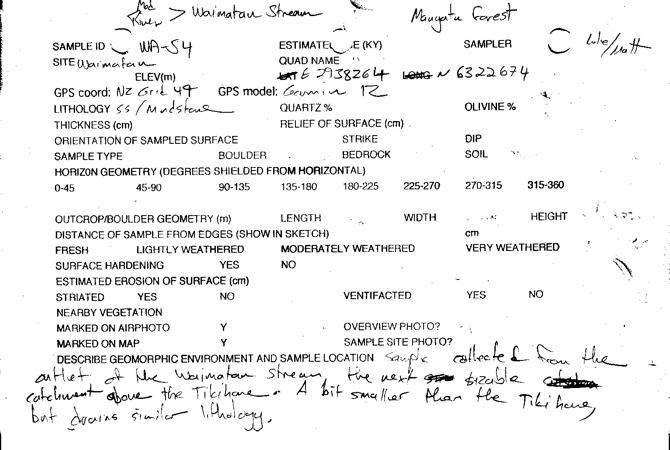 Mud River > Waimatau Stream Mangatu Forest
SAMPLE ID WA-S4 ESTIMATE E (KY) SAMPLER Luke/Matt
SITE Waimatau QUAD NAME "
ELEV(m) LAT E 2938264 LONG N 6322674
GPS coord: NZ Grid 49 GPS model: Garmin 12
LITHOLOGY SS/Mudstone QUARTZ % OLIVINE %
THICKNESS (cm) RELIEF OF SURFACE (cm)
ORIENTATION OF SAMPLED SURFACE STRIKE DIP
SAMPLE TYPE BOULDER BEDROCK SOIL
HORIZON GEOMETRY (DEGREES SHIELDED FROM HORIZONTAL)
0-45 45-90 90-135 135-180 180-225 225-270 270-315 315-360
OUTCROP/BOULDER GEOMETRY (m) LENGTH WIDTH HEIGHT
DISTANCE OF SAMPLE FROM EDGES (SHOW IN SKETCH) cm
FRESH LIGHTLY WEATHERED MODERATELY WEATHERED VERY WEATHERED
SURFACE HARDENING YES NO
ESTIMATED EROSION OF SURFACE (cm)
STRIATED YES NO VENTIFACTED YES NO
NEARBY VEGETATION
MARKED ON AIRPHOTO Y OVERVIEW PHOTO?
MARKED ON MAP Y SAMPLE SITE PHOTO?
DESCRIBE GEOMORPHIC ENVIRONMENT AND SAMPLE LOCATION Sample collected from the
outlet of the Waimatau Stream the next sizable
catchment above the Tikihore. A bit smaller than the Tikihore,
but drains similar lithology.